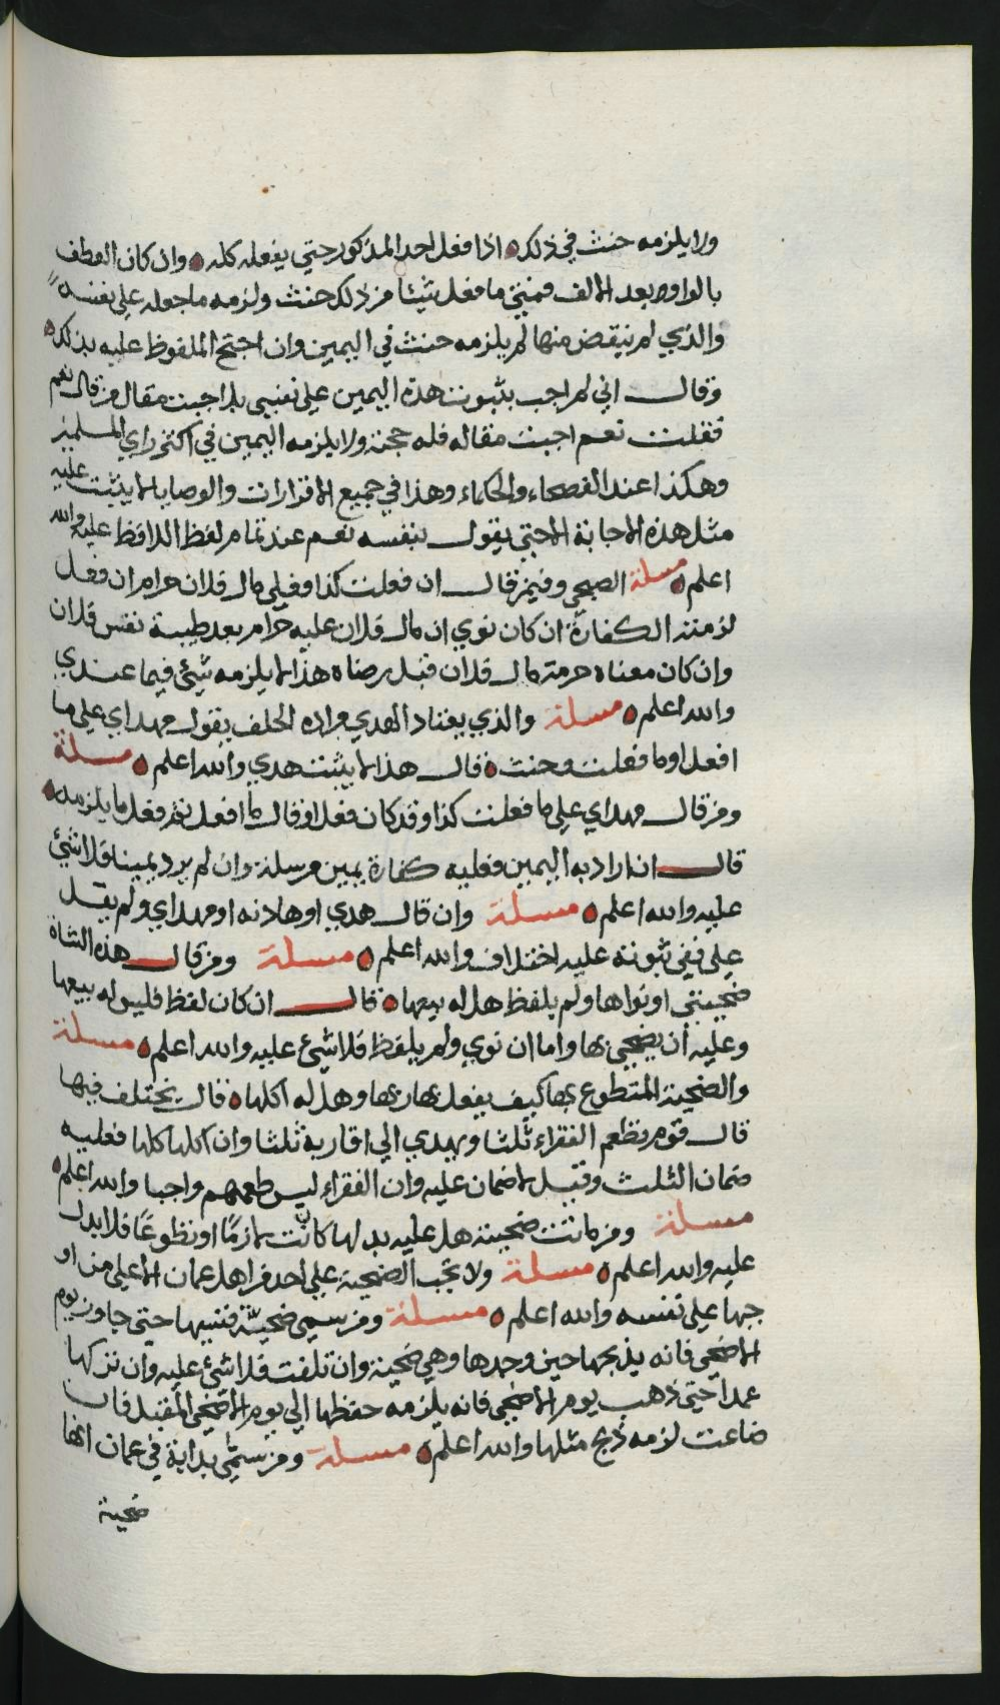 ولا يلزمه حنث في ذلك اذا فعل احد المذكور حتي يفعله كله وان كان العطف
بالواو بعد الالف فمتي ما فعل شيئا من ذلك حنث ولزمه ما جعله علي نفسه
والذي لم ينيقض منها لم يلزمه حنث في اليمين وان احتج الملفوظ عليه بذلك
وقال اني لم اجب بثبوت هذه اليمين علي نفسي بل اجبت مقال من قال نعم
فقلت نعم اجبت مقاله فله حجته ولا يلزمه اليمين في اكثر راي المسلمين
وهكذا عند الفصحاء والحكماء وهذا في جميع الاقرارات والوصايا لا يثبت عليه
مثل هذه الاجابة الا حتي يقول بنفسه نعم عند تمام لفظ اللافظ عليه والله
اعلم مسلة الصبحي وفيمن قال ان فعلت كذا وفعلي مال فلان حرام ان فعل
لزمته الكفارة ان كان نوي ان مال فلان عليه حرام بعد طيبة نفس فلان
وان كان معناه حرمة مال فلان قبل رضاه هذا لا يلزمه شئ فيما عندي
والله اعلم مسلة والذي يعتاد الهدي مراده الحلف يقول مهداي علي ما
افعل او ما فعلت وحنث قال هذا لا يثبت هدي والله اعلم مسلة
ومن قال مهداي علي ما فعلت كذا وقد كان فعل او قال لا افعل ثم فعل ما يلزمه
قال ان اراد به اليمين فعليه كفارة يمين مرسلة وان لم يرد يمينا فلا شئ
عليه والله اعلم مسلة وان قال هدي او هلانه او مهداي ولم يقل
علي ففي ثبوته عليه اختلاف والله اعلم مسلة ومن قال هذه الشاة
ضحيتي او نواها ولم يلفظ هل له بيعها قال ان كان لفظ فليس له بيعها
وعليه أن يضحي بها واما ان نوي ولم يلفظ فلا شئ عليه والله اعلم مسلة
والضحية المتطوع بها كيف يفعل بها ربها وهل له اكلها قال يختلف فيها
قال قوم يطعم الفقراء ثلثا ويهدي الي اقاربه ثلثا وان اكلها كلها فعليه
ضمان الثلث وقيل لا ضمان عليه وان الفقراء ليس طعمهم واجبا والله اعلم
مسلة ومن ماتت ضحيته هل عليه بدلها كانت لازمًا او تطوعًا فلا بدل
عليه والله اعلم مسلة ولا تجب الضحية علي احد من اهل عمان الا علي من او
جبها علي نفسه والله اعلم مسلة ومن سمي ضحيّة فنسيها حتى جاوز يوم
الاضحي فانه يذبحها حين وجدها وهي ضحية وان تلفت فلا شئ عليه وان تركها
عمدا حتي ذهب يوم الاضحي فانه يلزمه حفظها الي يوم الاضحي المقبل فان
ضاعت لزمه ذبح مثلها والله اعلم مسلة ومن سمّي بدابة في عمان انها
ضحية